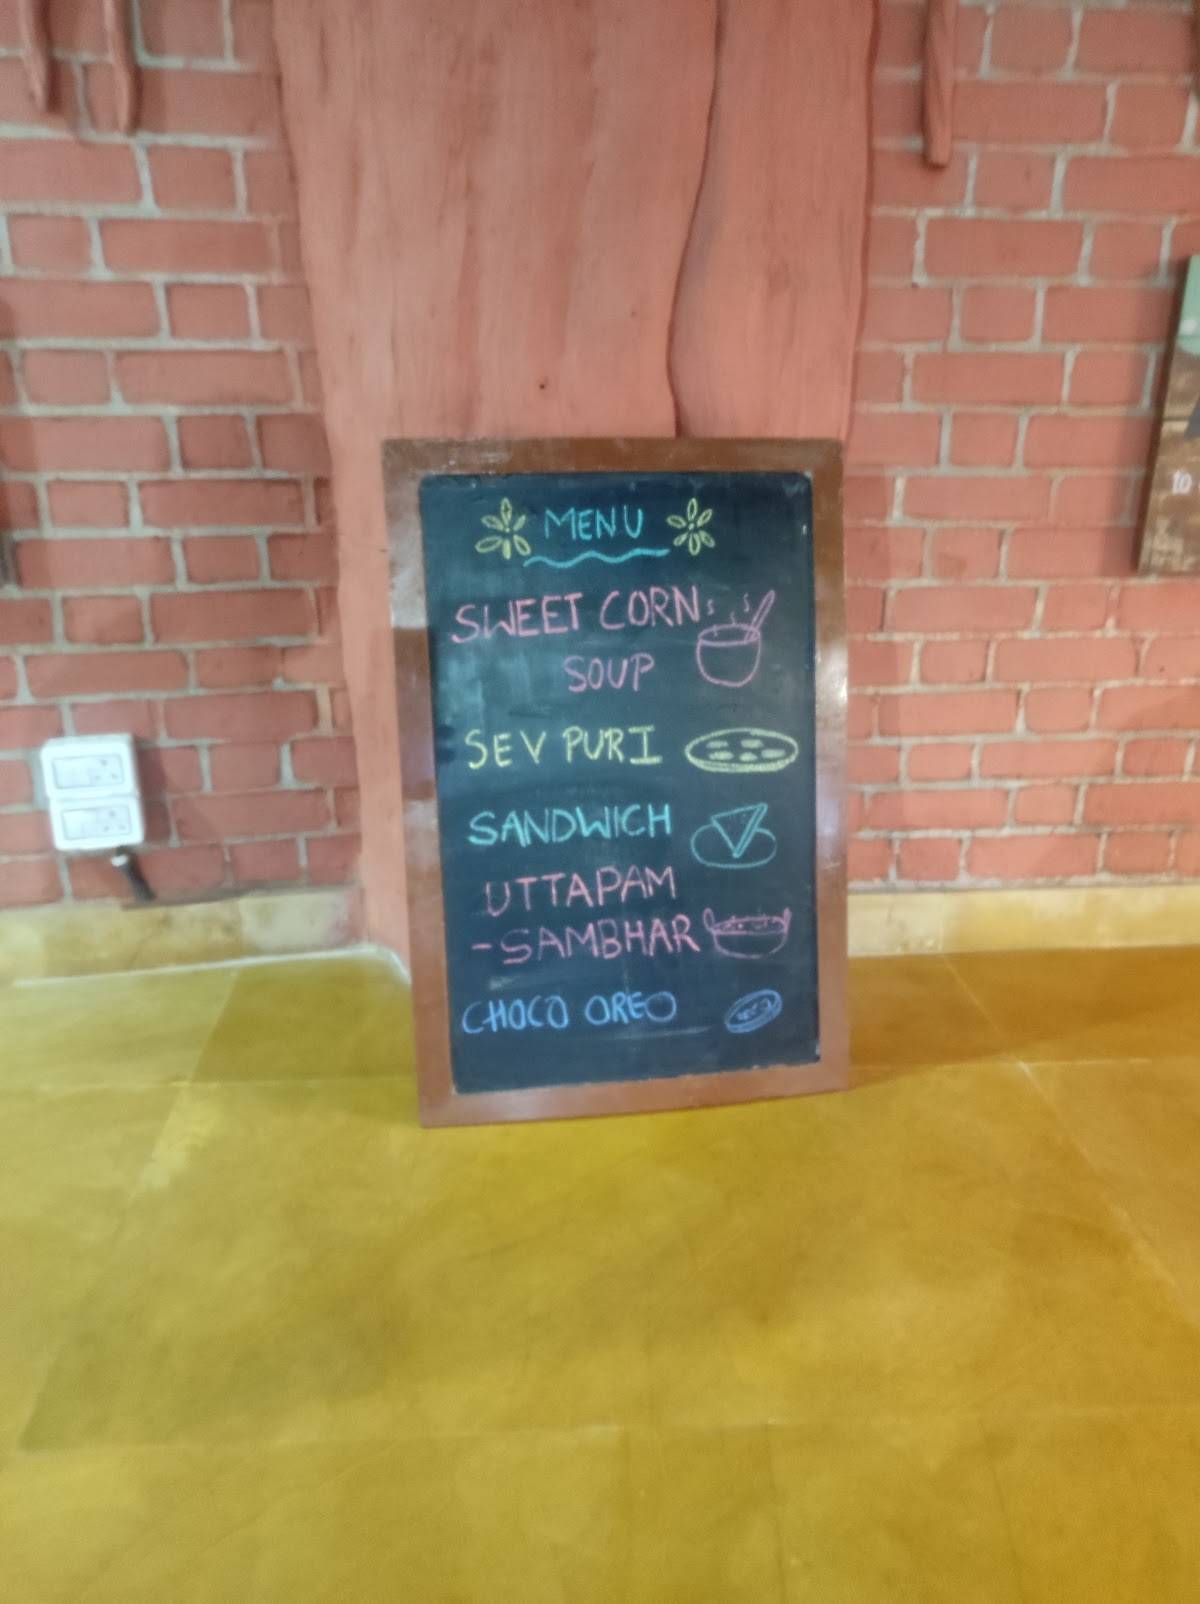 MENU
SWEET CORN
SOUP
SEV PURI
SANDWICH
UTTAPAM
-SAMBHAR
CHOCO OREO
to